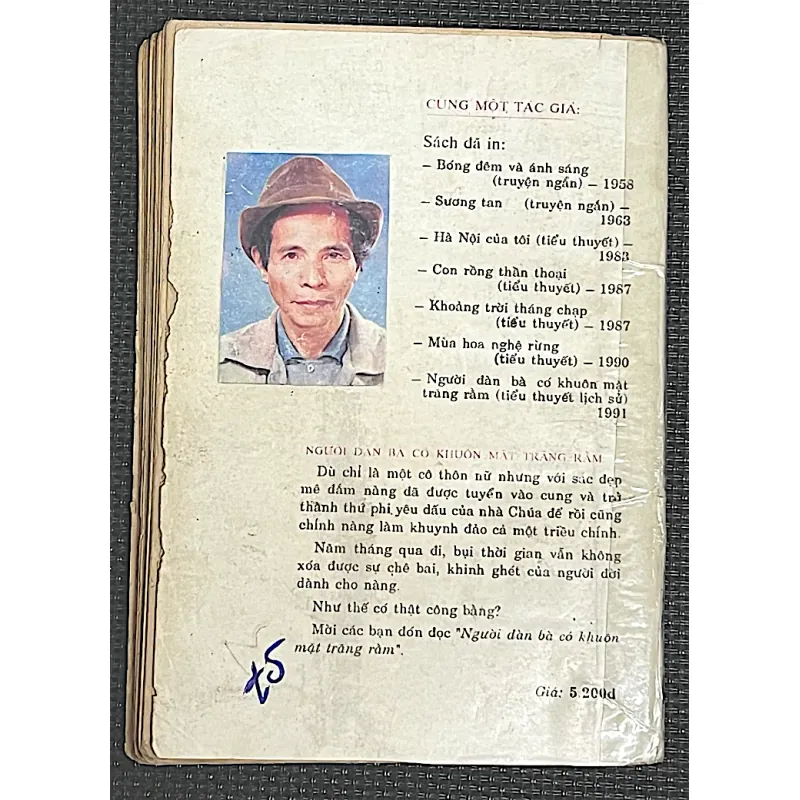 CÙNG MỘT TÁC GIẢ:
Sách đã in:
– Bóng đêm và ánh sáng
(truyện ngắn) – 1958
– Sương tan (truyện ngắn) –
1963
– Hà Nội của tôi (tiểu thuyết) –
1983
– Con rồng thần thoại
(tiểu thuyết) – 1987
– Khoảng trời tháng chạp
(tiểu thuyết) – 1987
– Mùa hoa nghệ rừng
(tiểu thuyết) – 1990
– Người đàn bà có khuôn mặt
trăng rằm (tiểu thuyết lịch sử)
1991
NGƯỜI ĐÀN BÀ CÓ KHUÔN MẶT TRĂNG RẰM
Dù chỉ là một cô thôn nữ nhưng với sắc đẹp
mê đắm nàng đã được tuyển vào cung và trở
thành thứ phi yêu dấu của nhà Chúa để rồi cũng
chính nàng làm khuynh đảo cả một triều chính.
Năm tháng qua đi, bụi thời gian vẫn không
xóa được sự chê bai, khinh ghét của người đời
dành cho nàng.
Như thế có thật công bằng?
Mời các bạn đón đọc "Người đàn bà có khuôn
mặt trăng rằm".
t5
Giá: 5.200đ